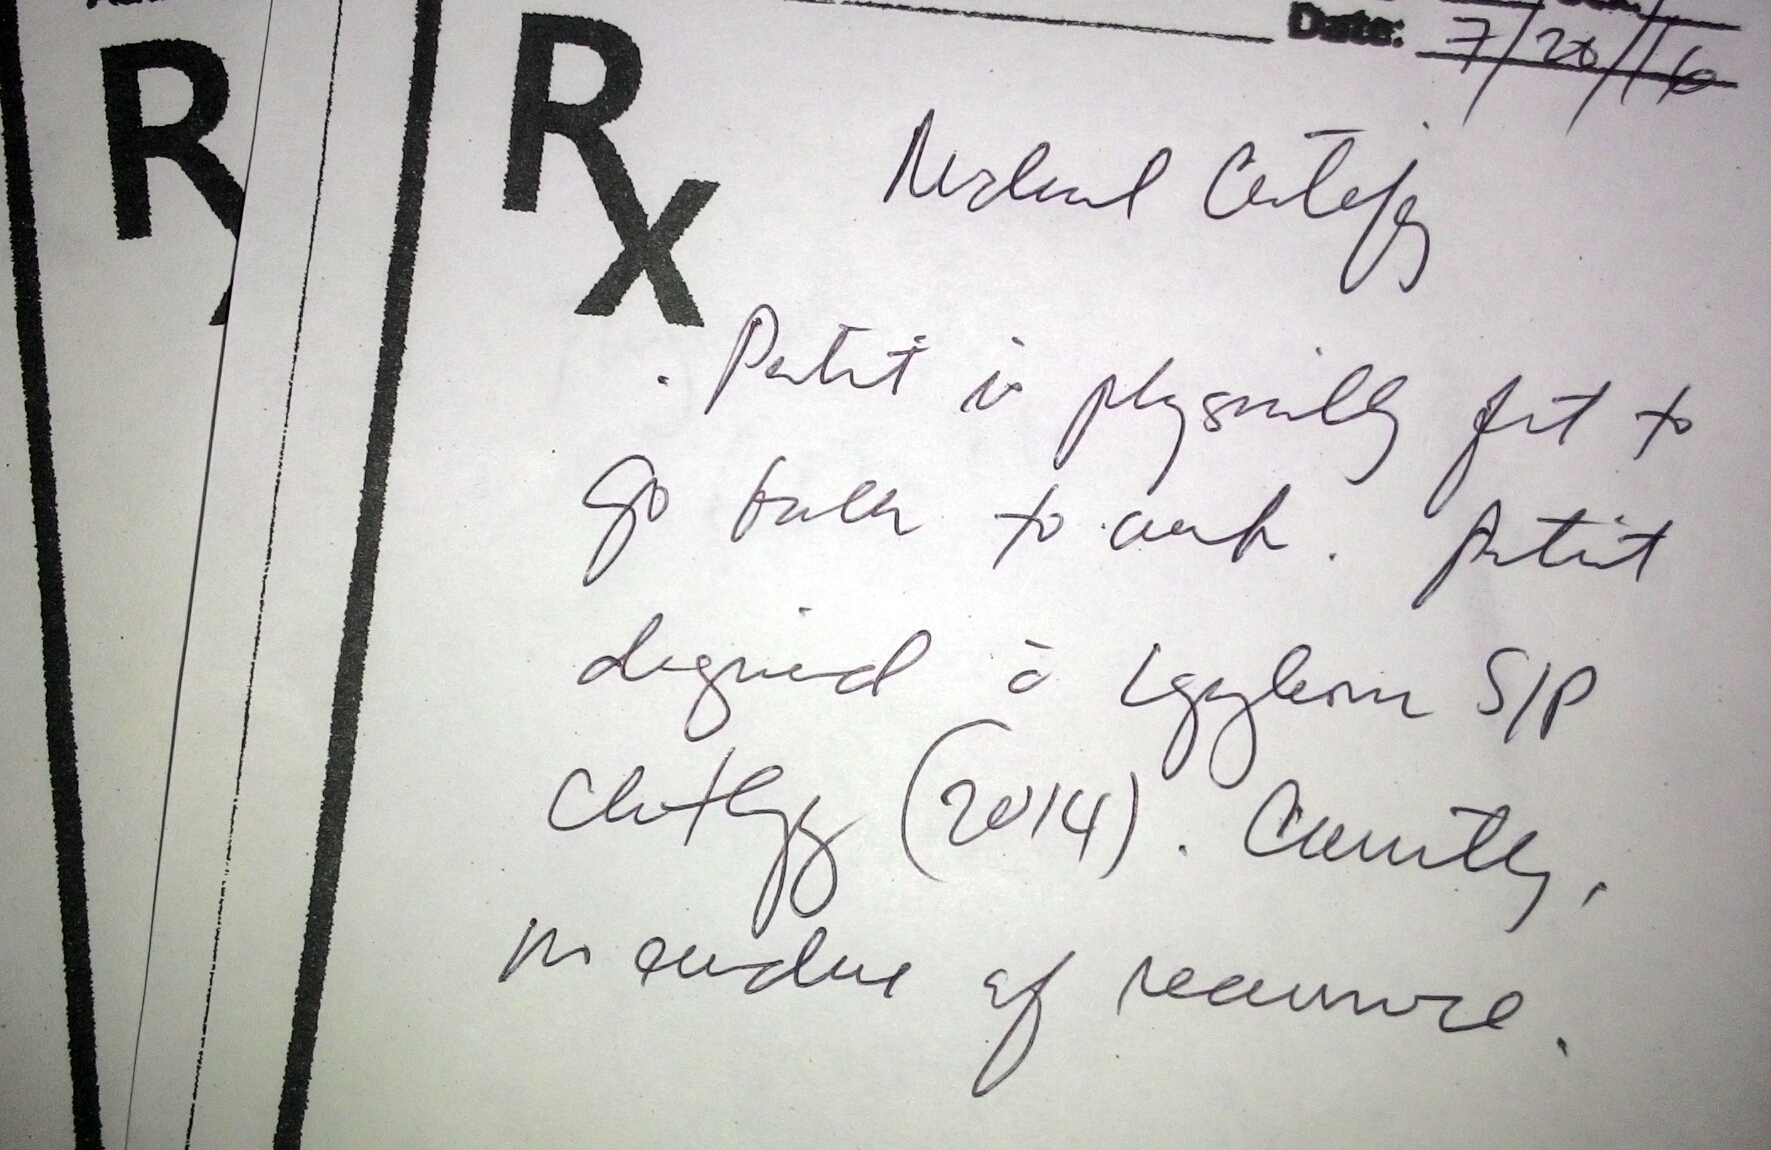 Rx
Date: 7/20/16
Rx
Medical Certify
. Patient is physically fit to
go back to work. Patient
diagnosed c̄ Lymphoma S/P
Chemotherapy (2014). Currently,
no evidence of recurrence.